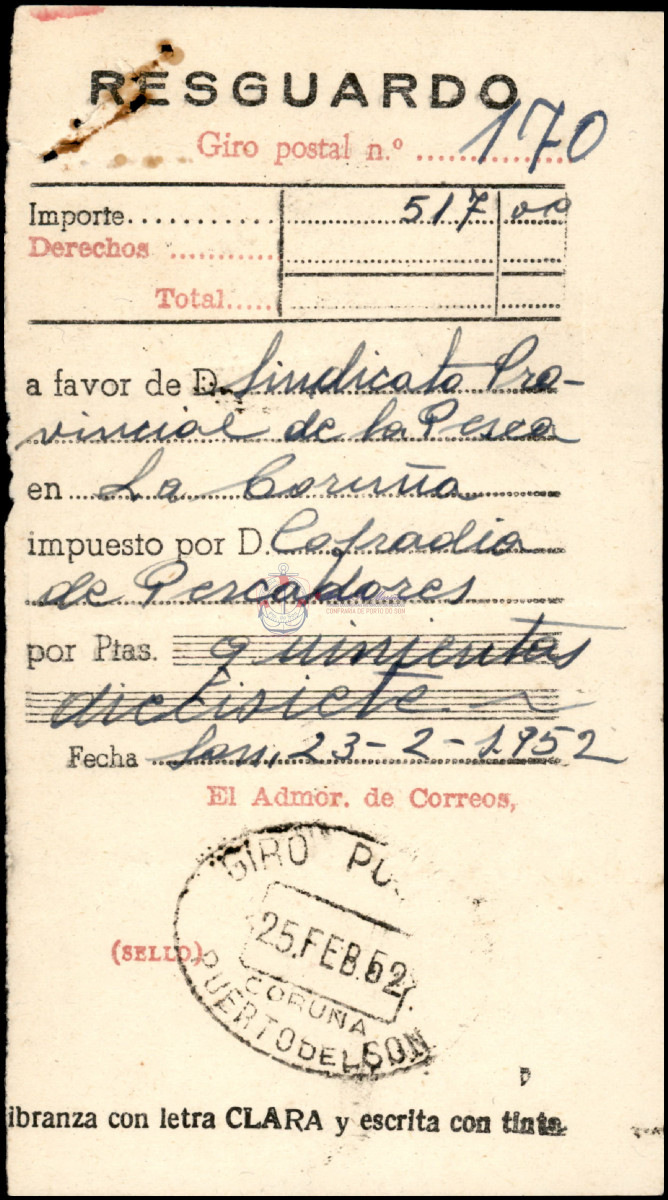 RESGUARDO
Giro postal n.º 170
Importe 517 00
Derechos
Total
a favor de D. Sindicato Pro-
vincial de la Pesca
en La Coruña
impuesto por D. Cofradia
de Pescadores
CONFRARÍA DE PORTO DO SON
por Ptas. quinientas
diecisiete
Fecha Son, 23-2-1952
El Admor. de Correos,
GIRO
25.FEB.52
(SELLO)
CORUÑA
PUERTO DEL SON
ibranza con letra CLARA y escrita con tinta